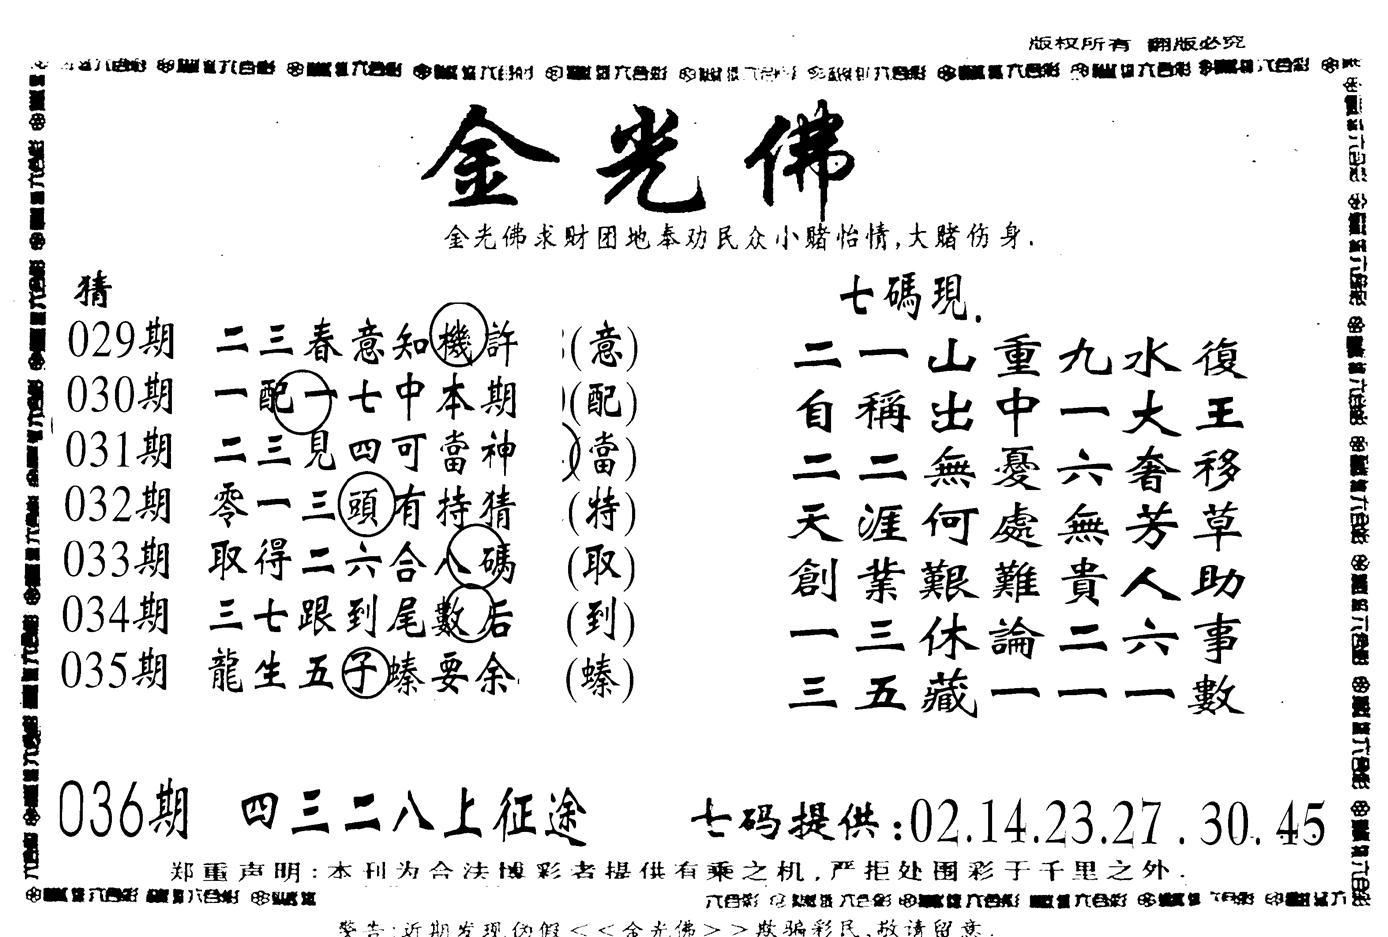 版权所有 翻版必究
金光佛
金光佛求财团地奉劝民众小赌怡情,大赌伤身.
猜
029期 二三春意知機許 (意)
030期 一配一七中本期 (配)
031期 二三見四可當神 (當)
032期 零一三頭有持猜 (特)
033期 取得二六合八碼 (取)
034期 三七跟到尾數后 (到)
035期 龍生五子螓要余 (螓)
七碼現.
二一山重九水復
自稱出中一大王
二二無憂六奢移
天涯何處無芳草
創業艱難貴人助
一三休論二六事
三五藏一一一數
036期 四三二八上征途
七码提供:02.14.23.27.30.45
郑重声明:本刊为合法博彩者提供有乘之机,严拒处围彩于千里之外.
警告:近期发现伪假<<金光佛>>欺骗彩民,敬请留意.